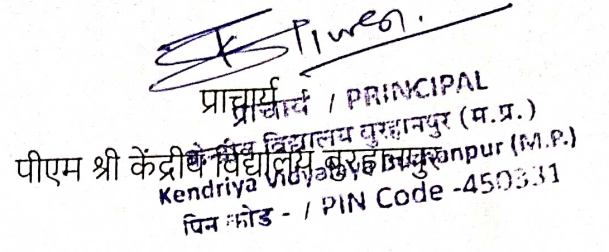 प्राचार्य
प्राचार्य / PRINCIPAL
केन्द्रीय विद्यालय बुरहानपुर (म.प्र.)
पीएम श्री केंद्रीय विद्यालय बुरहानपुर
Kendriya Vidyalaya Burhanpur (M.P.)
पिन कोड - / PIN Code -450331